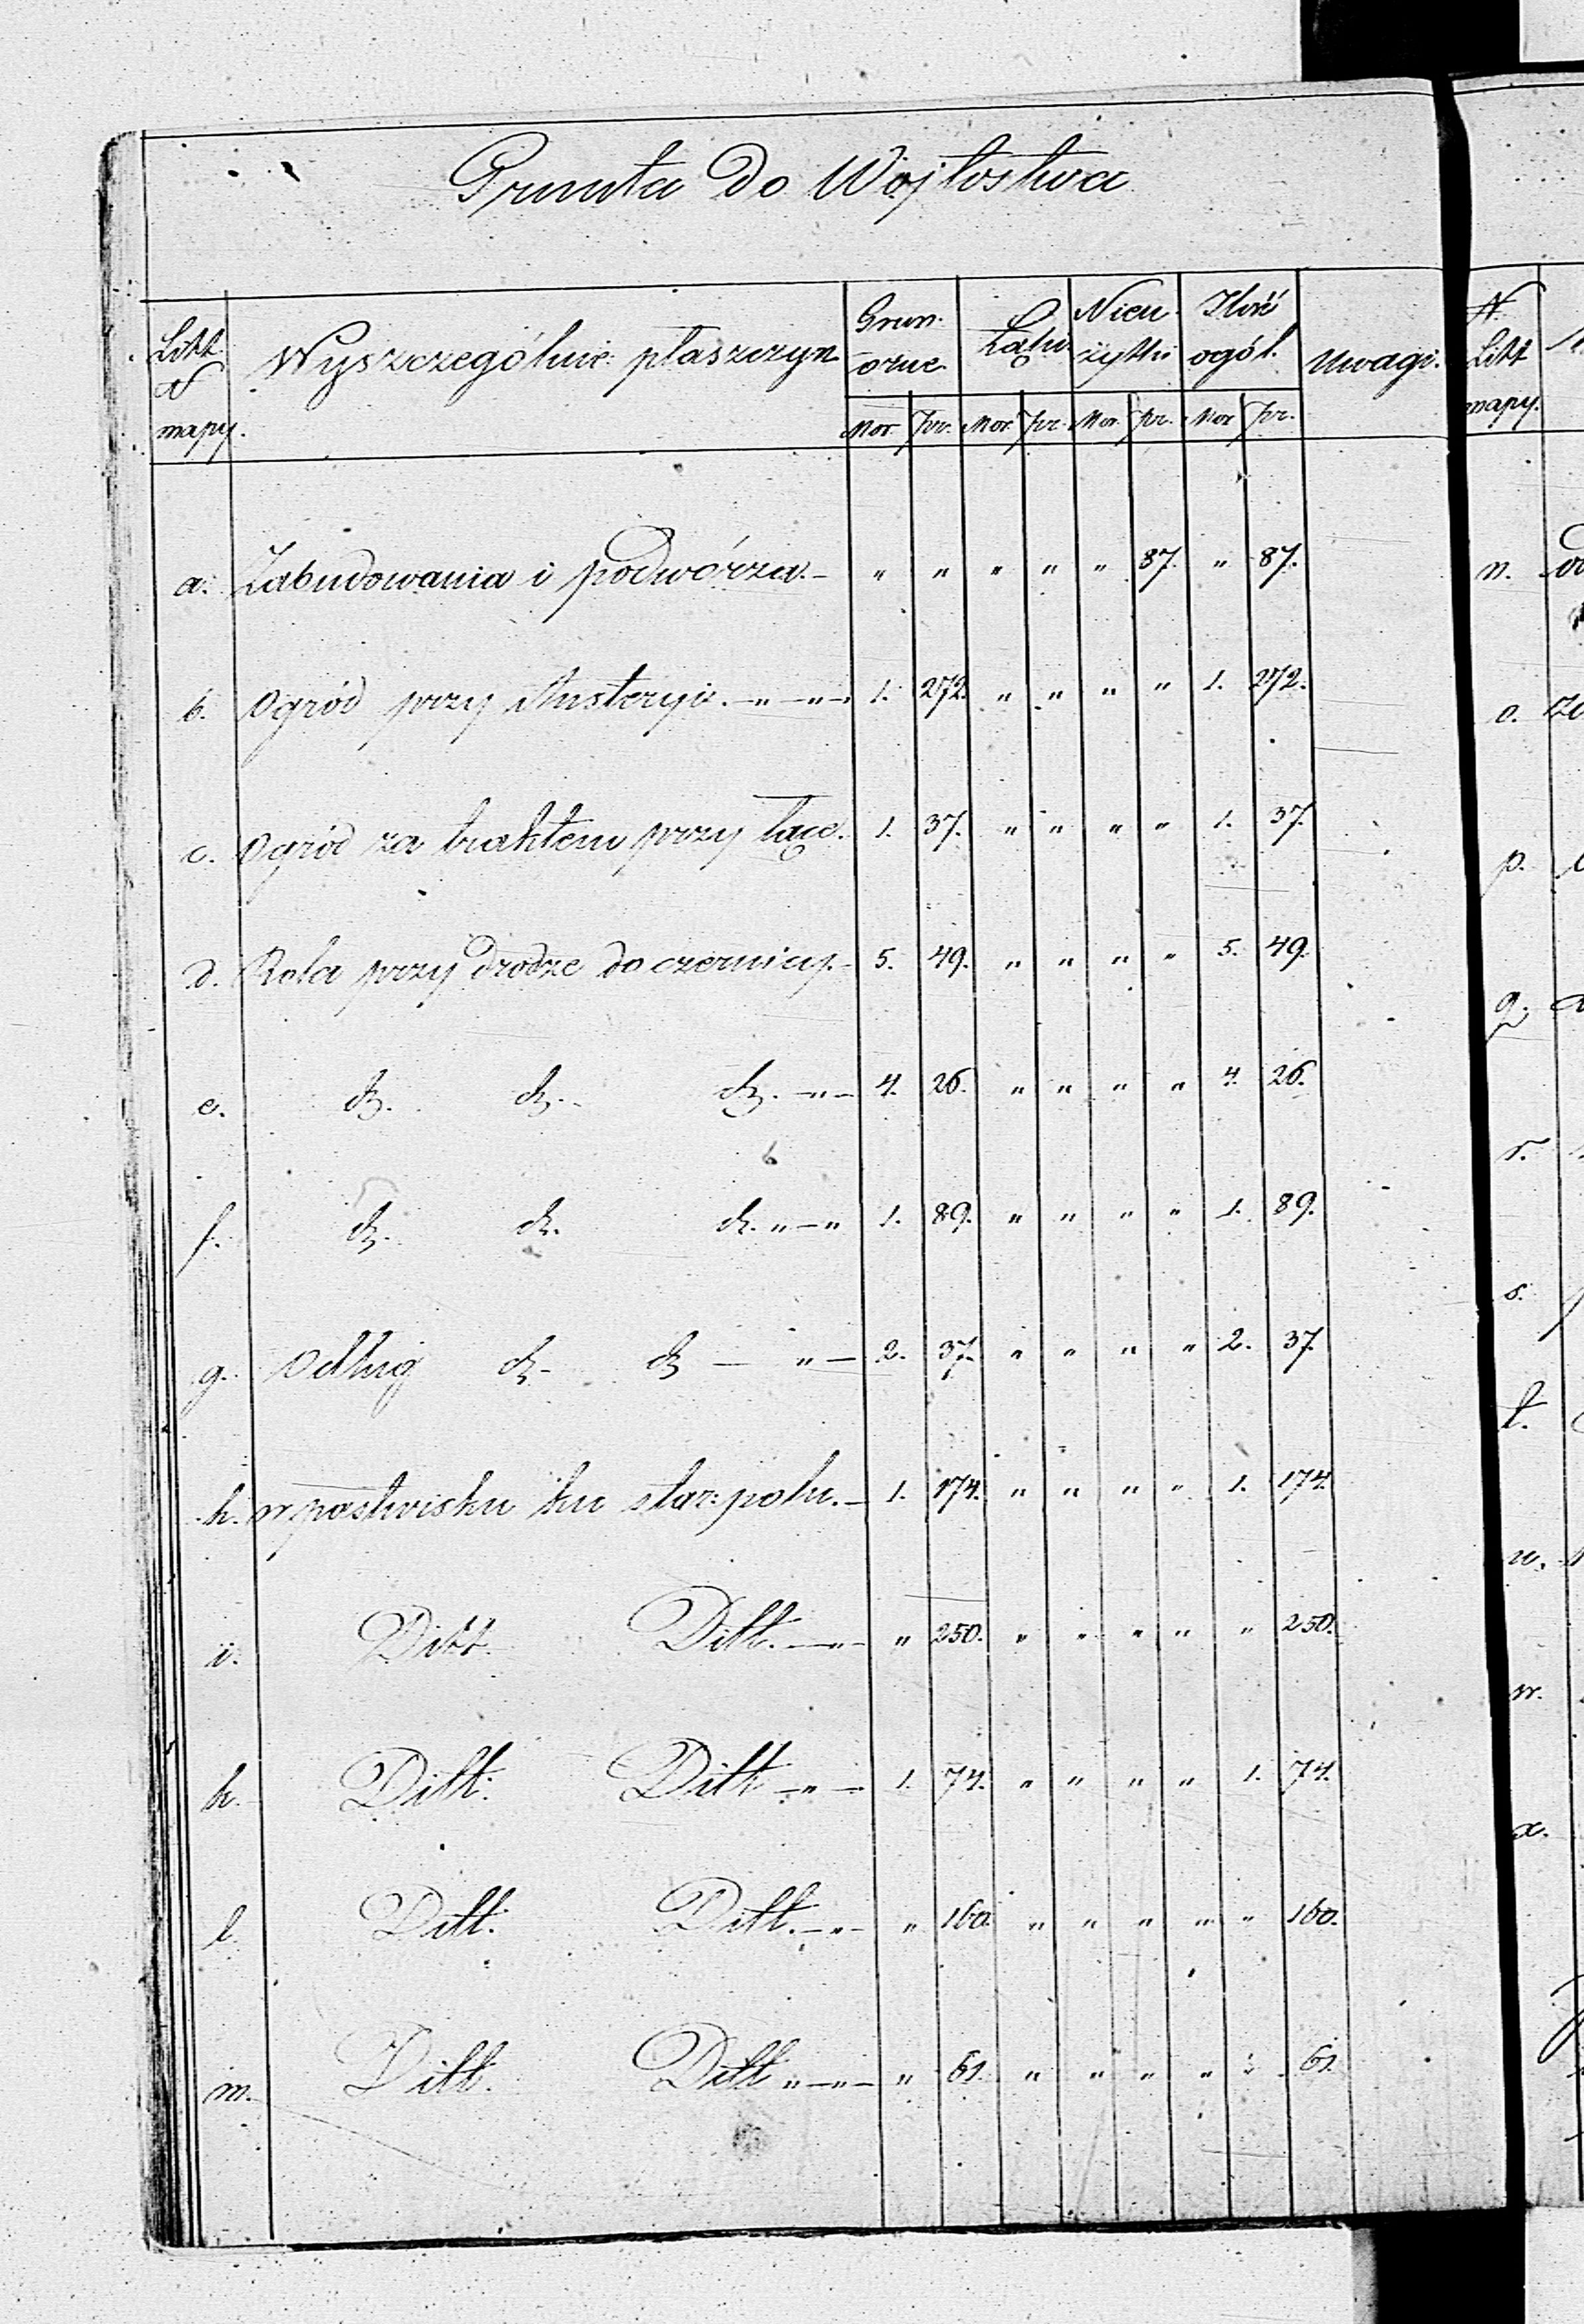 Grunta do Wojtostwa
Litt N mapy. Wyszczególnie: płaszczyzn Grun. orne Łąki Nieu żytki Ilość ogól. Uwagi.
Mor. Pr. Mor. Pr. Mor. Pr. Mor. Pr.
a. Zabudowania i podwórza. — " " " " " 87. " 87.
b. Ogród przy Austeryi. — " — " — 1. 272. " " " " 1. 272.
c. Ogród za traktem przy łące. 1. 37. " " " " 1. 37.
d. Rola przy drodze do czernicy. — 5. 49. " " " " 5. 49.
e. dt. dt. dt. — " — 4. 26. " " " " 4. 26.
f. dt. dt. dt. " — " 1. 89. " " " " 1. 89.
g. Odług dt. dt — " — 2. 37. " " " " 2. 37.
h. w pastwisku ku star: polu. — 1. 174. " " " " 1. 174.
i. Ditt. Ditt. — " — " 250. " " " " " 250.
k. Ditt. Ditt — " — 1. 74. " " " " 1. 74.
l. Ditt. Ditt. — " — " 160. " " " " " 160.
m. Ditt. Ditt " — " — " 61. " " " " " 61.
N. Litt mapy.
n.
o.
p.
q.
r.
s.
t.
u.
w.
x.